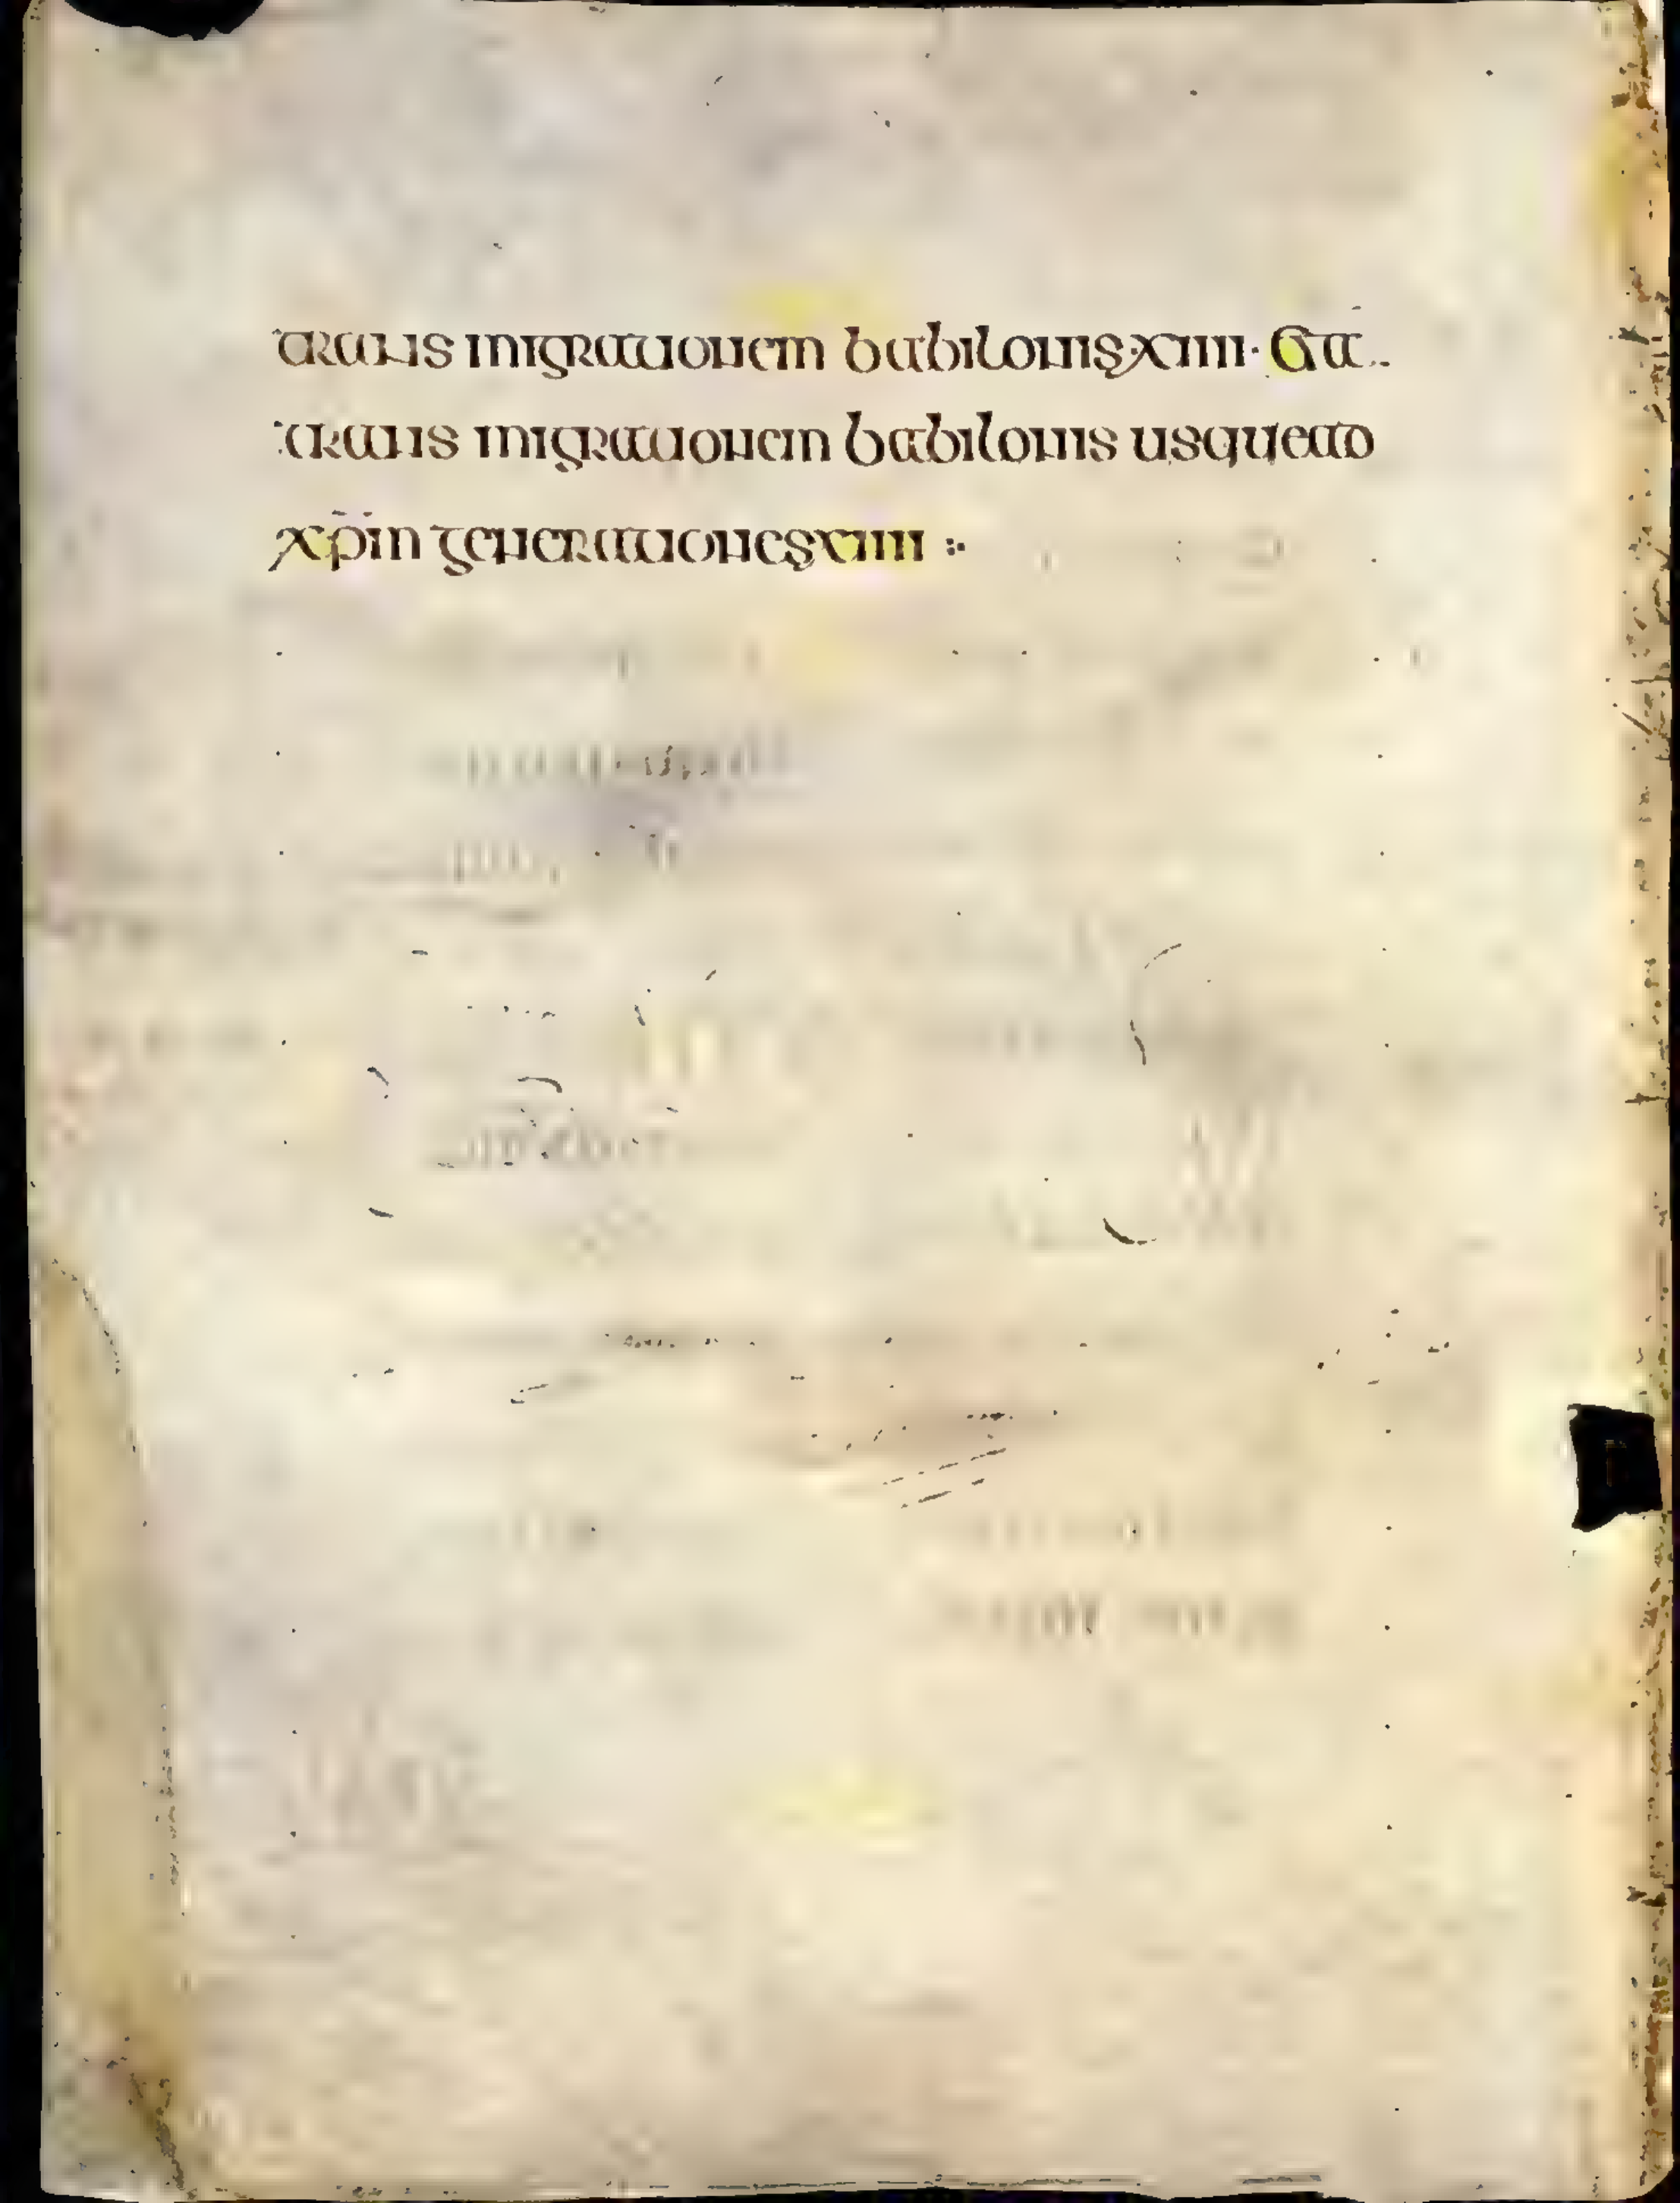 transmigrationem babilonis·xiiii· Et a..
transmigrationem babilonis usquead
xp̄m generationes xiiii :·